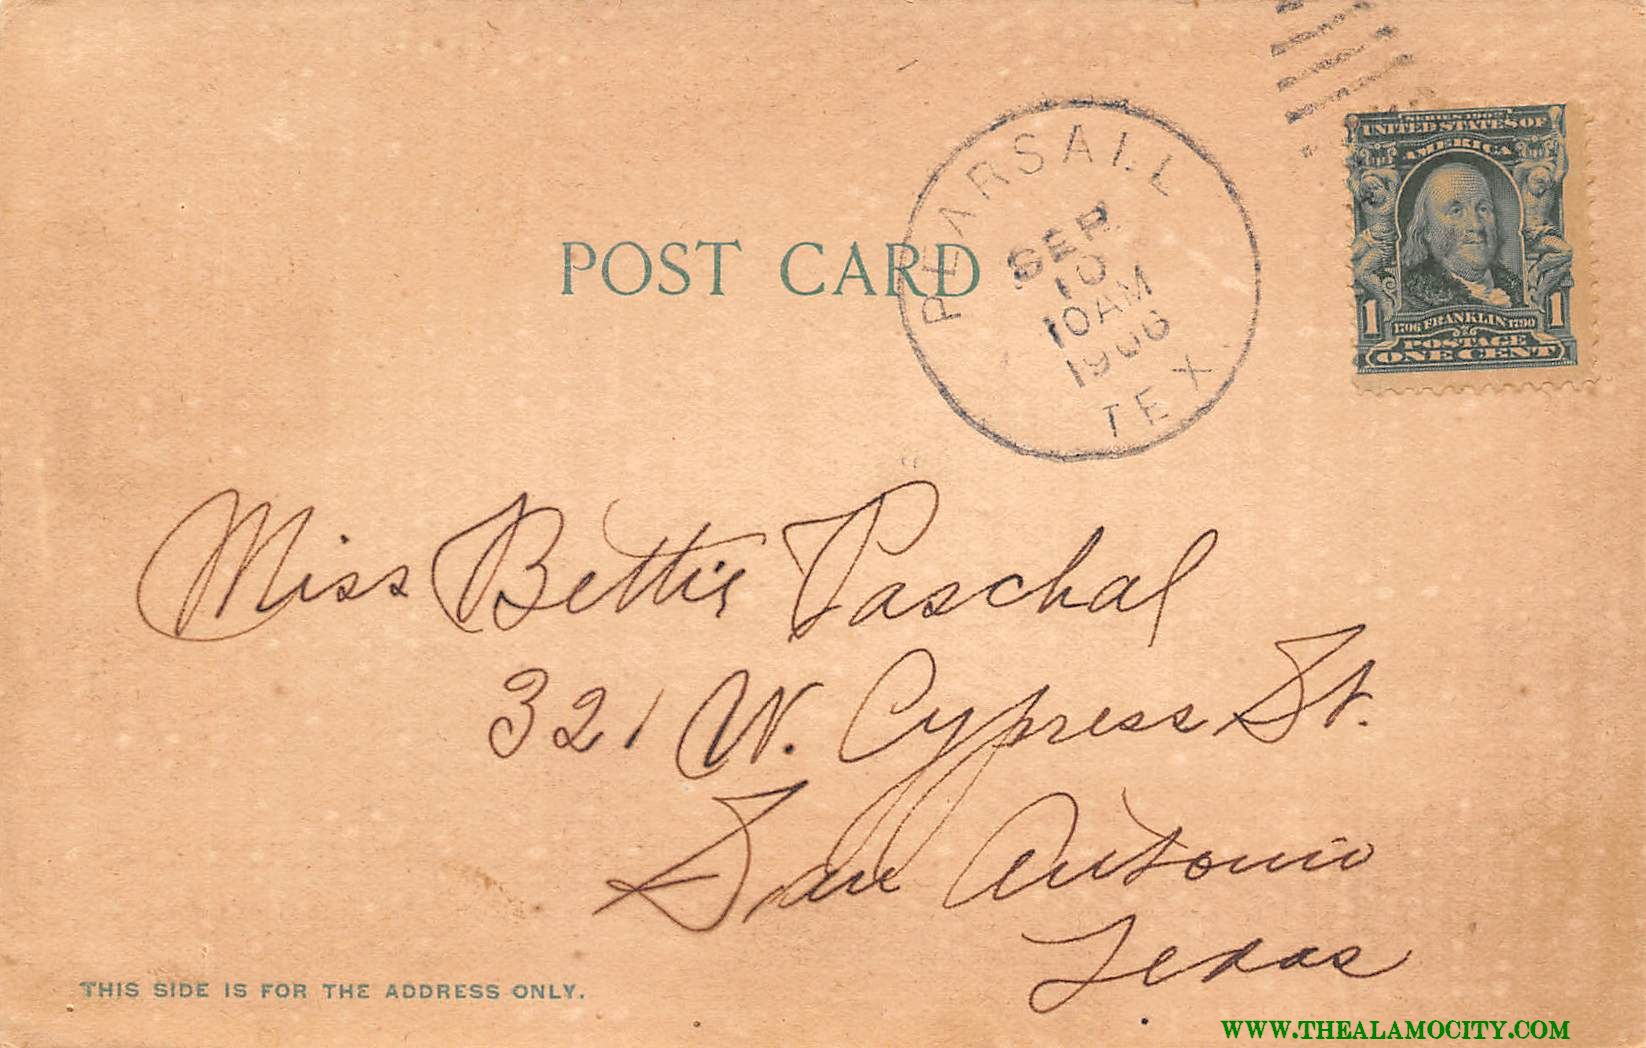 POST CARD
PEARSALL
SEP
10
10AM
1906
TEX
SERIES 1902
UNITED STATES OF
AMERICA
1 1
1706 FRANKLIN 1790
POSTAGE
ONE CENT
Miss Bettie Paschal
321 W. Cypress St.
San Antonio
Texas
THIS SIDE IS FOR THE ADDRESS ONLY.
WWW.THEALAMOCITY.COM